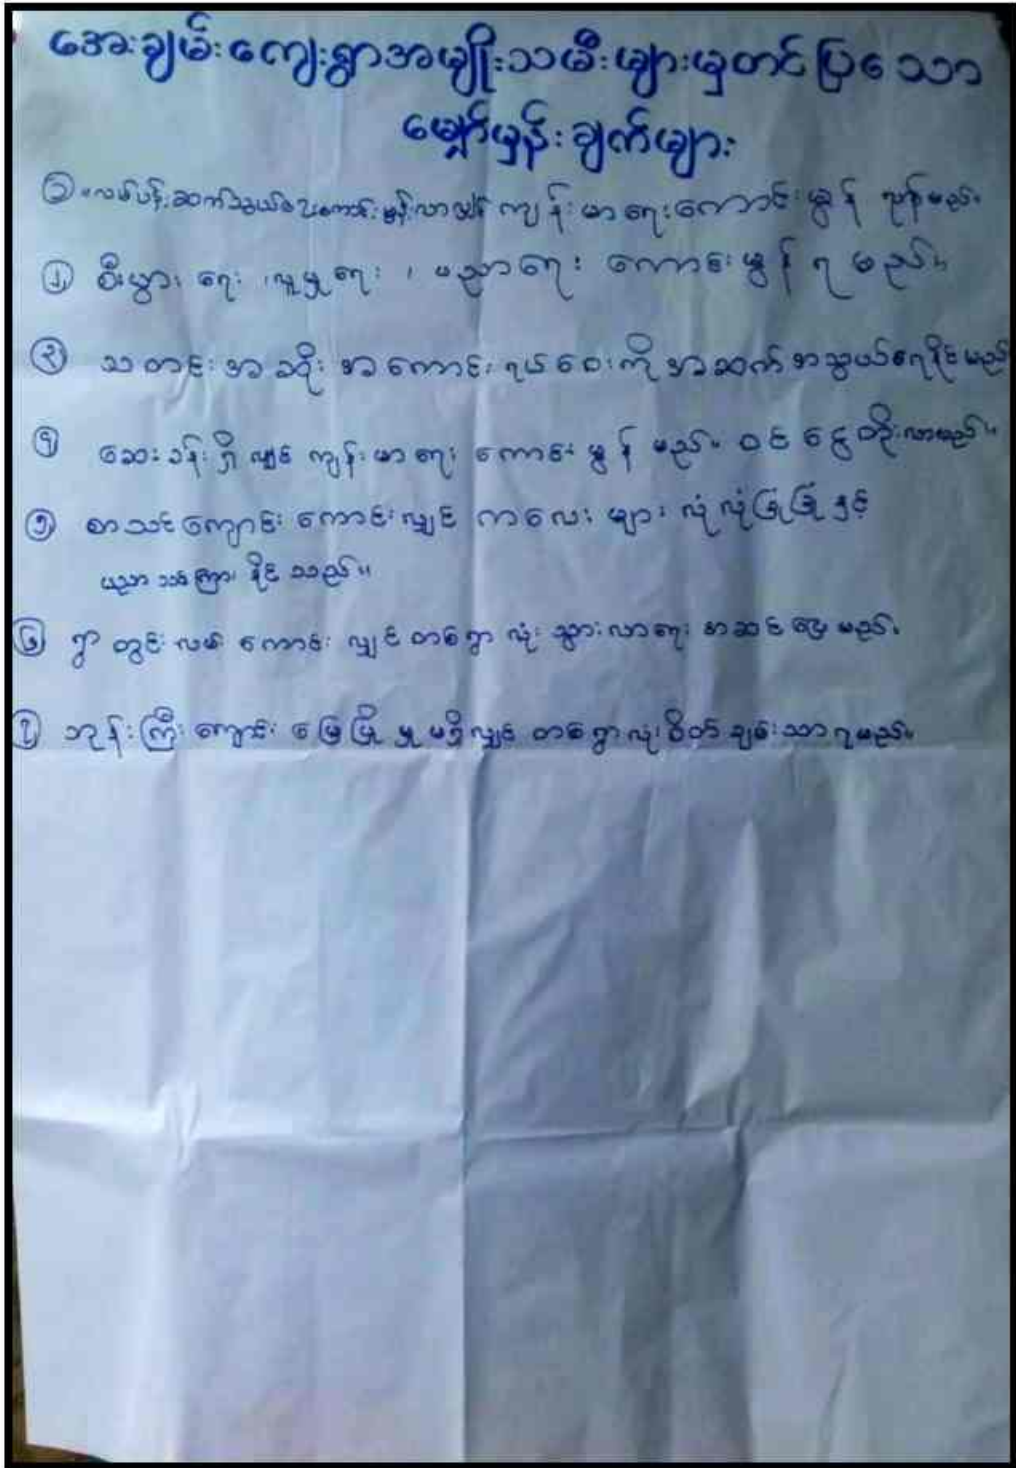 အေးချမ်းကျေးရွာအမျိုးသမီးများမှတင်ပြသော
မျှော်မှန်းချက်များ
၁ လမ်းပန်းဆက်သွယ်ရေးကောင်းမွန်လာလျှင် ကျန်းမာရေးကောင်းမွန် မည်။
၂ စီးပွားရေး ၊ လူမှုရေး ၊ ပညာရေး ကောင်းမွန် ရ မည်။
၃ သတင်း အဆိုး အကောင်း ရပ်ဝေးကို အဆက်အသွယ်ရနိုင်မည်
၄ ဆေးခန်းရှိလျှင် ကျန်းမာရေး ကောင်းမွန် မည်။ ဝင်ငွေတိုးလာမည်။
၅ စာသင်ကျောင်း ကောင်းလျှင် ကလေး များ လုံလုံခြုံခြုံနှင့်
ပညာ သင်ကြား နိုင် သည်။
၆ ရွာတွင်းလမ်း ကောင်း လျှင် တစ်ရွာလုံး သွားလာရေး အဆင်ပြေမည်။
၇ ဘုန်းကြီးကျောင်း မြေပြိုမှုမရှိလျှင် တစ်ရွာလုံးစိတ်ချမ်းသာရမည်။